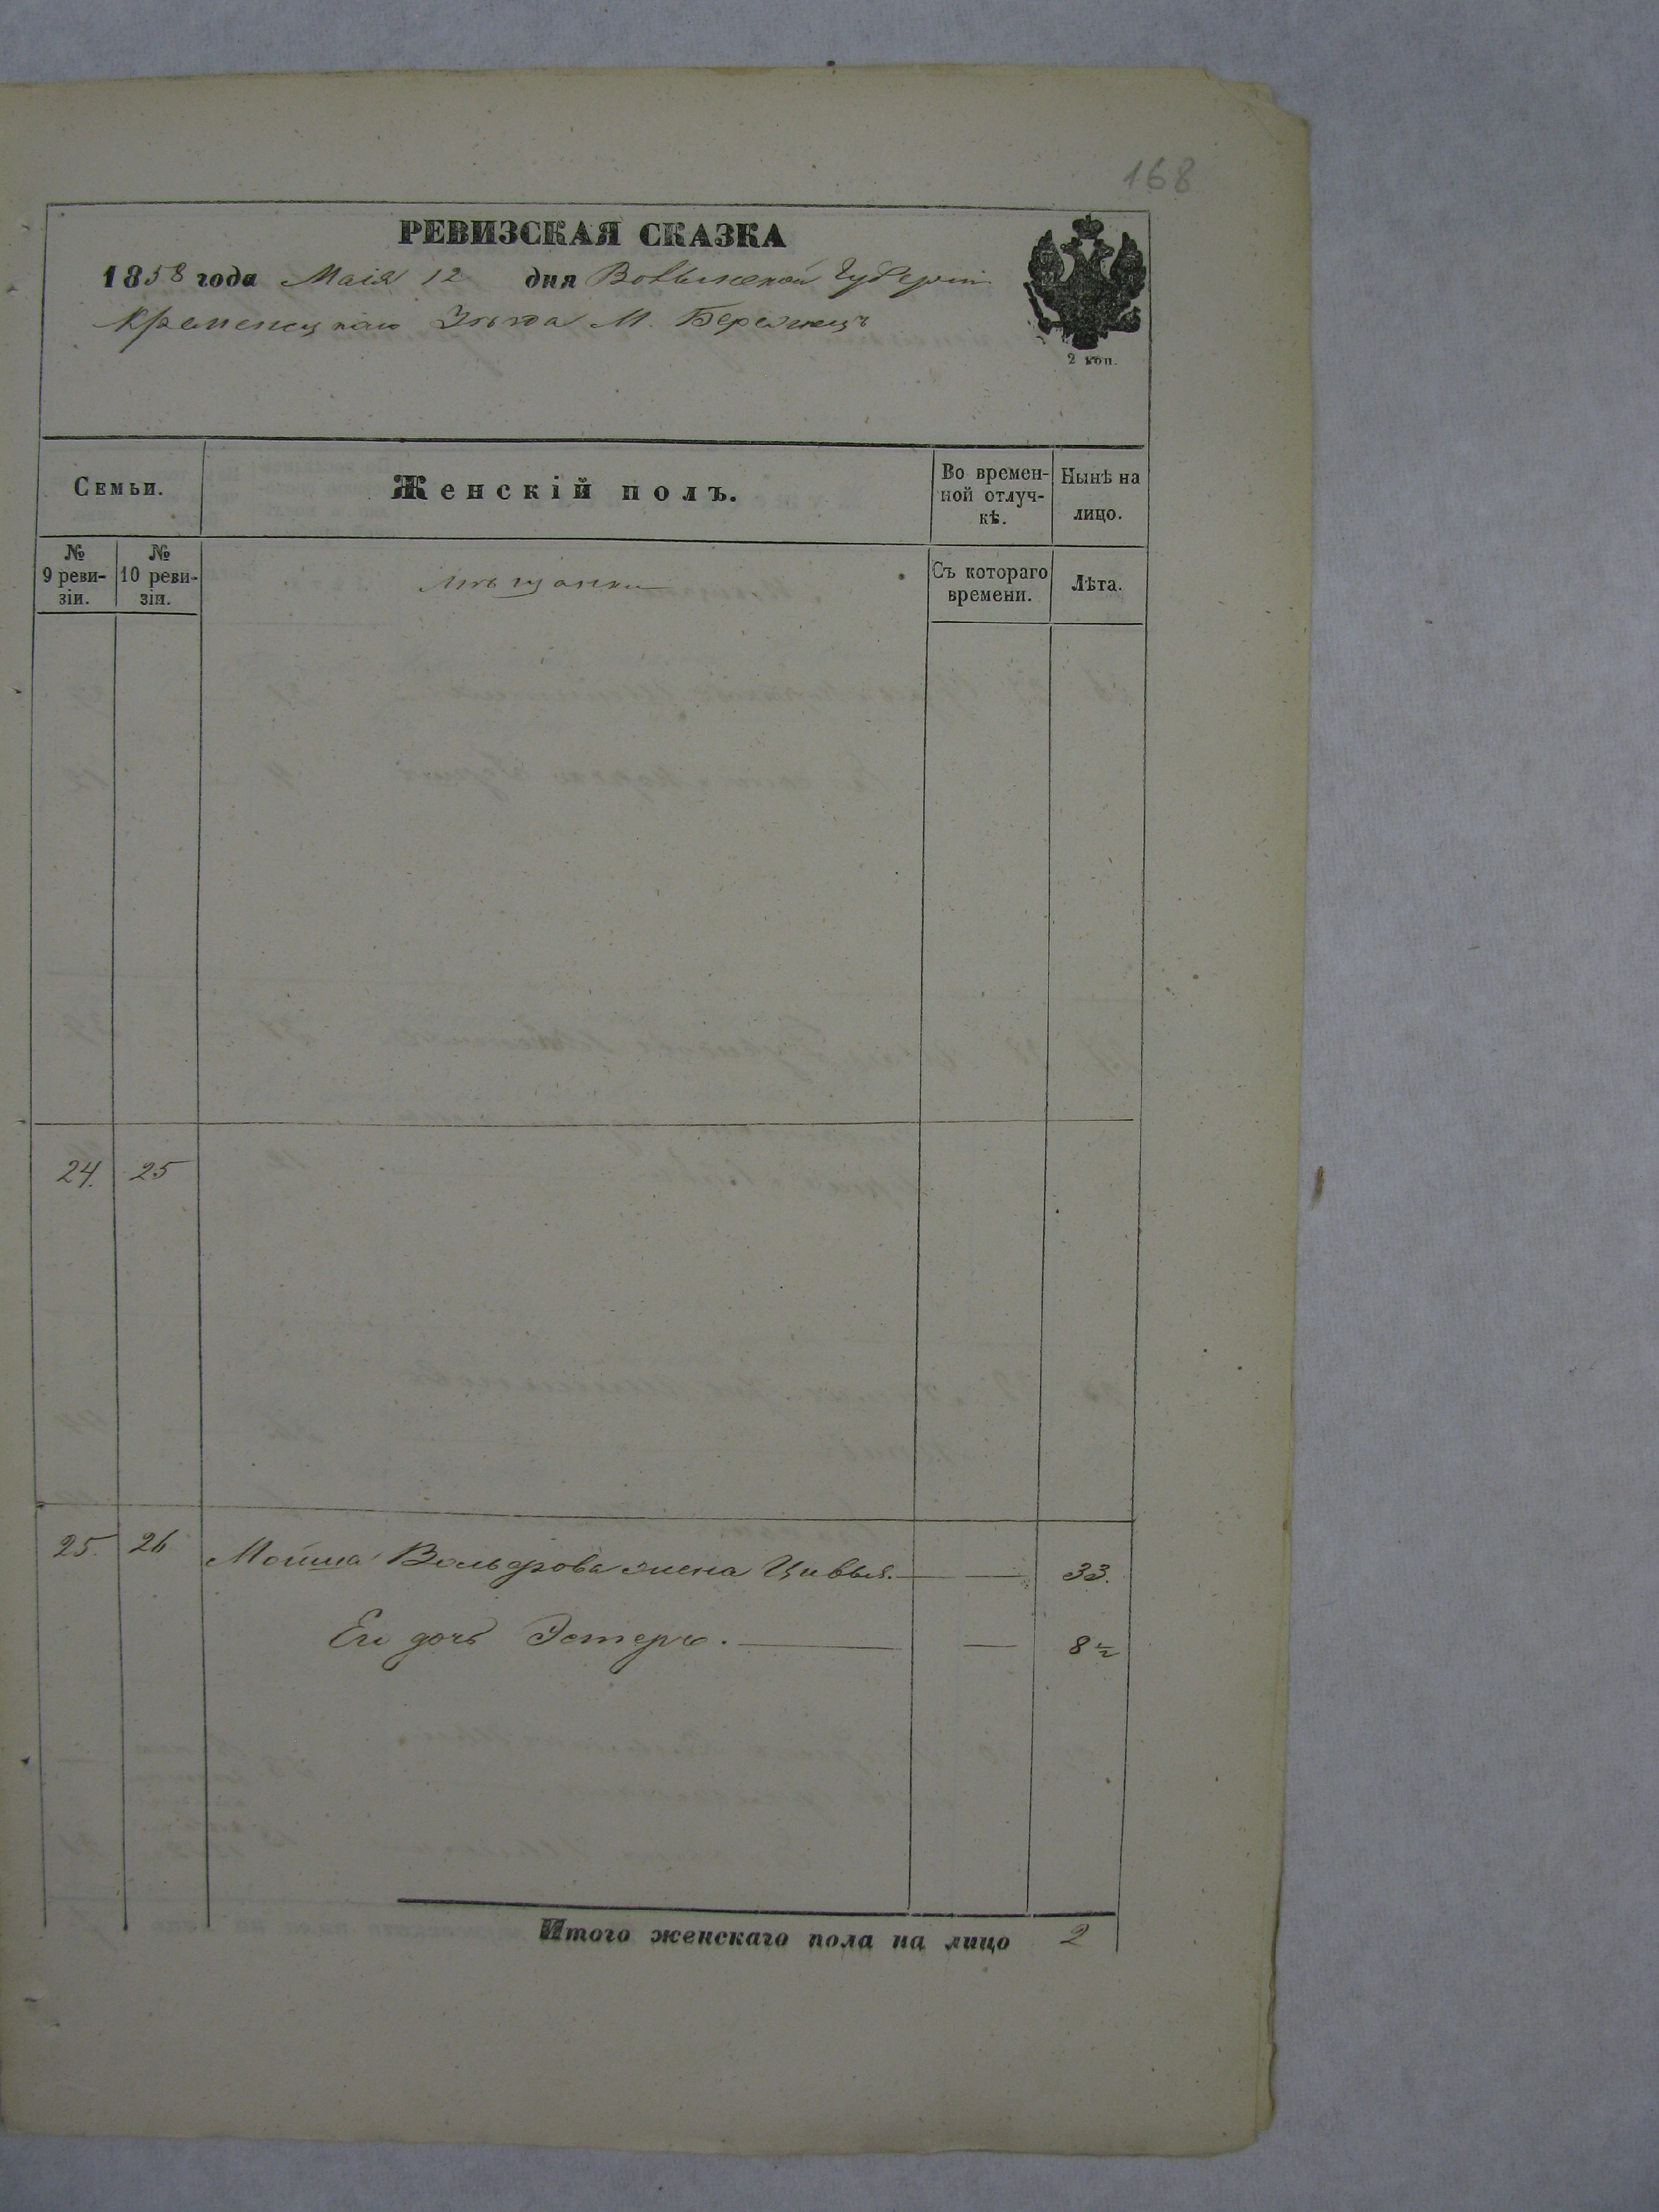 168
РЕВИЗСКАЯ СКАЗКА
1858 года Маія 12 дня Волынской Губерніи
Кременецкаго Уѣзда М. Бережецъ
2 коп.
Семьи. Женскій полъ. Во времен-ной отлуч-кѣ. Нынѣ на лицо.
№ 9 реви-зіи. № 10 реви-зіи. Мѣщанки Съ котораго времени. Лѣта.
24. 25
25. 26 Мойша Вольфова жена Цивья. — — 33.
Его дочь Эстеръ. — — 8 ½
Итого женскаго пола на лицо 2